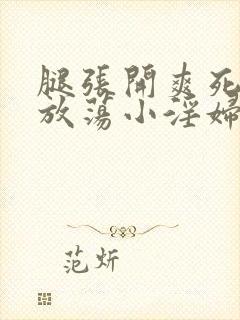 腿張開爽死
放蕩小淫婦
范炘